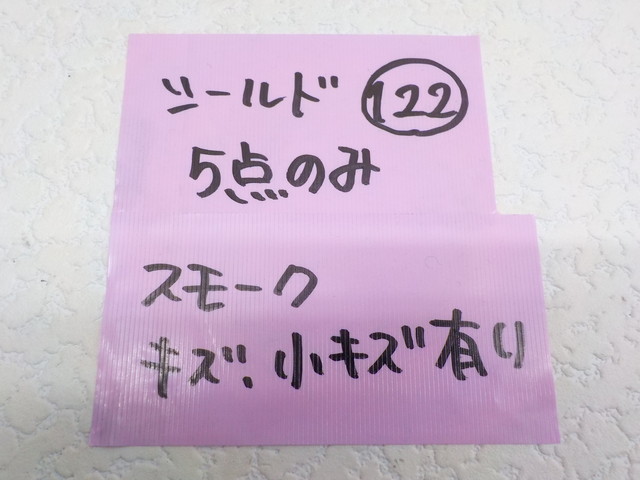 シールド 122
5点のみ
スモーク
キズ、小キズ有り